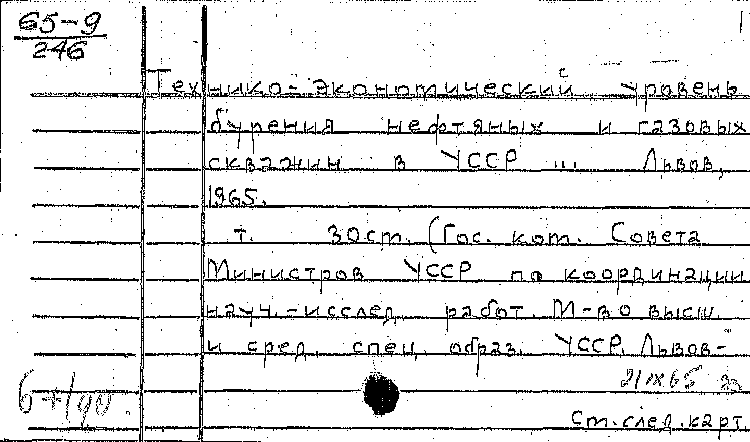 65-9
246
Технико-экономический уровень
бурения нефтяных и газовых
скважин в УССР ... Львов,
1965.
т. 30ст. (Гос. ком. Совета
Министров УССР по координации
науч.-исслед. работ. М-во высш.
и сред. спец. образ. УССР. Львов-
21 IX 65
ст. след. карт.